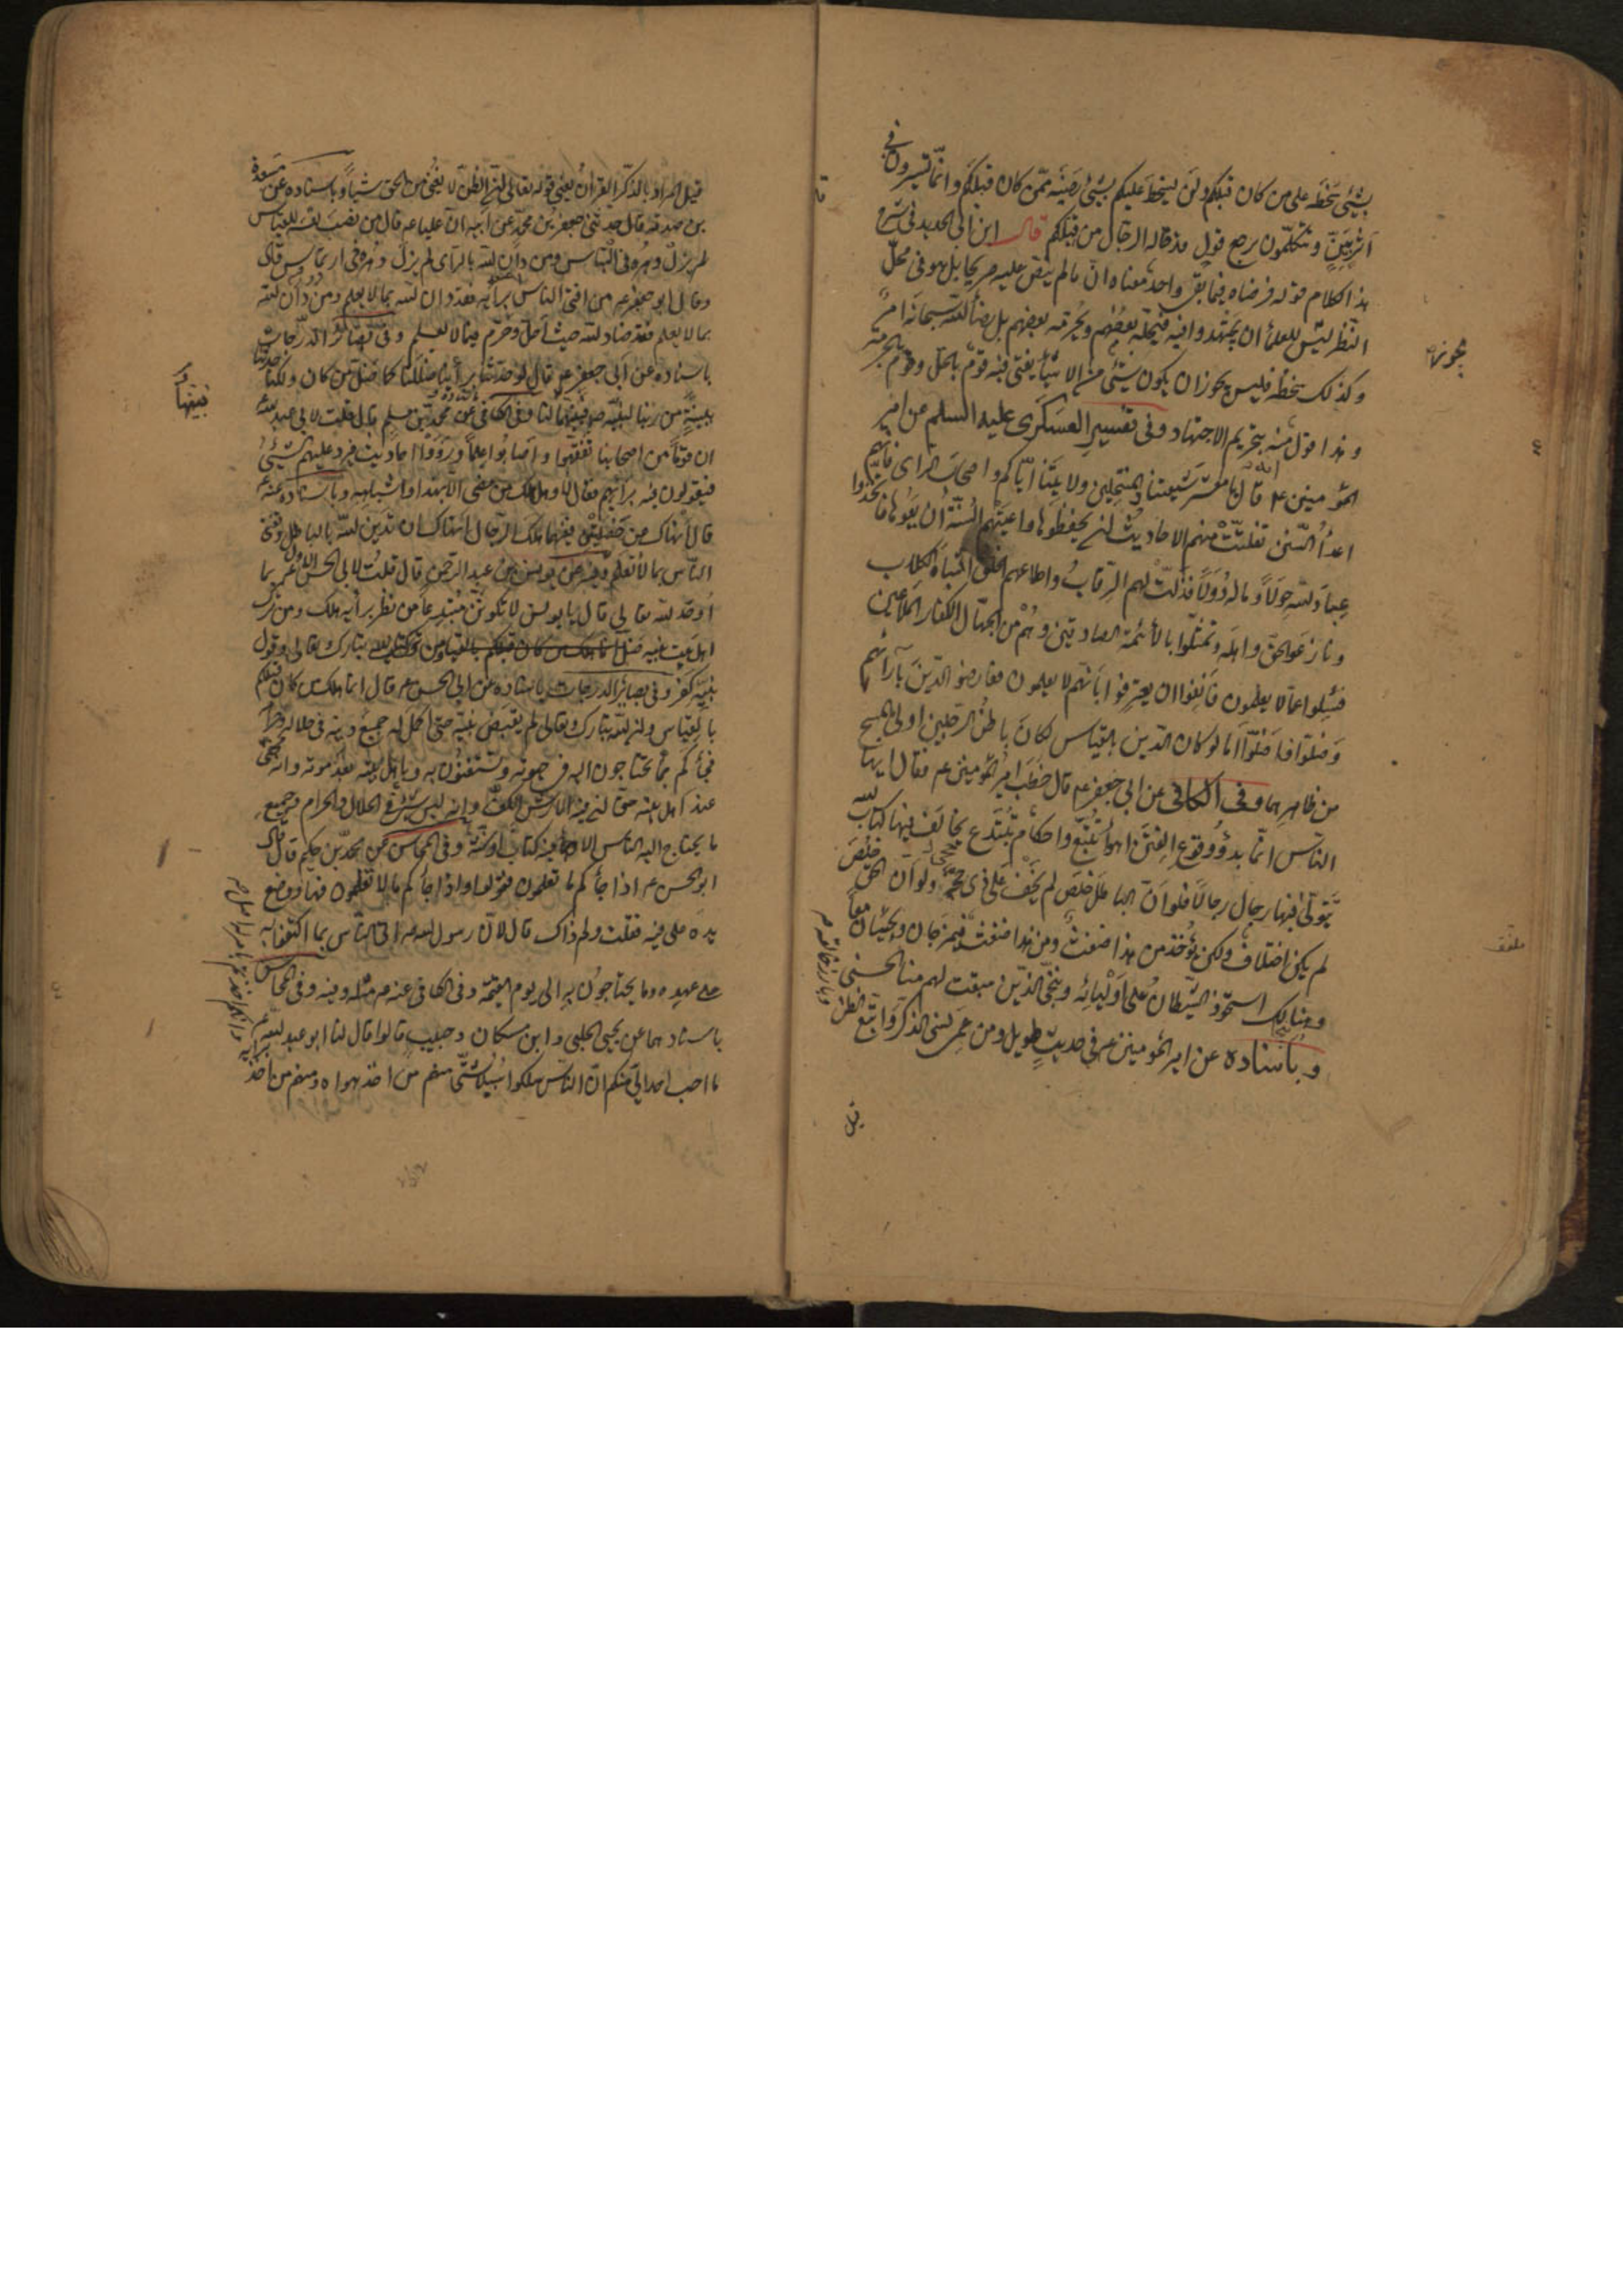 بشئ سخطه على من كان قبلكم ولن يسخط عليكم بشئ رضيه ممن كان قبلكم وانما تسيرون في
اثر بين وتتكلمون برجع قول قد قاله الرجال من قبلكم قال ابن ابي الحديد في شرح
هذا الكلام قوله فرضاه فيما بقي واحد معناه ان ما لم ينص عليه صريحا بل هو في محل
النظر ليس للعلماء ان يجتهدوا فيه فيحله بعضهم ويحرمه بعضهم بل رضا الله سبحانه امر
وكذلك سخطه فليس يجوز ان يكون شئ من الاشياء يفتي فيه قوم بالحل وقوم بالحرمة
وهذا قول منه بتحريم الاجتهاد وفي تفسير العسكري عليه السلم عن امير
المؤمنين ع انه قال يا معشر شيعتنا والمنتحلين ولايتنا اياكم واصحاب الراى فانهم
اعداء السنن تفلتت منهم الاحاديث ان يحفظوها واعيتهم السنة ان يعوها فاتخذوا
عباد الله خولا وماله دولا فذلت لهم الرقاب واطاعهم الخلق اشباه الكلاب
ونازعوا الحق واهله وتمثلوا بالائمة الصادقين وهم من الجهال الكفار الملاعين
فسئلوا عما لا يعلمون فانفوا ان يعترفوا بانهم لا يعلمون فعارضوا الدين بآرائهم
وضلوا فاضلوا اما لو كان الدين بالقياس لكان باطن الرجلين اولى بالمسح
من ظاهرهما وفي الكافي عن ابي جعفر ع قال خطب امير المؤمنين ع فقال ايها
الناس انما بدؤ وقوع الفتن اهواء تتبع واحكام تبتدع يخالف فيها كتاب الله
يتولى فيها رجال رجالا فلو ان الباطل خلص لم يخف على ذي حجى ولو ان الحق خلص
لم يكن اختلاف ولكن يؤخذ من هذا ضغث ومن هذا ضغث فيمزجان ويجيئان معا
وهنالك استحوذ الشيطان على اوليائه ونجى الذين سبقت لهم منا الحسنى
وباسناده عن امير المؤمنين ع في حديث طويل ومن عمى نسى الذكر واتبع الظن
وبارز خالقه
قيل
قيل المراد بالذكر القرآن يعني قوله تعالى ان الظن لا يغني من الحق شيئا وباسناده عن مسعدة
بن صدقه قال حدثني جعفر بن محمد عن ابيه ان عليا ع قال من نصب نفسه للقياس
لم يزل دهره في التباس ومن دان الله بالراى لم يزل دهره في ارتماس قال
وقال ابو جعفر ع من افتى الناس برأيه فقد دان الله بما لا يعلم ومن دان الله
بما لا يعلم فقد ضاد الله حيث احل وحرم فيما لا يعلم وفي بصائر الدرجات
باسناده عن ابي جعفر ع قال لو حدثنا برأينا ضللنا كما ضل من كان قبلنا ولكنا حدثنا
ببينة من ربنا لنبيه ص فبينها لنا وفي الكافي عن محمد بن مسلم قال قلت لابي عبد الله ع
ان قوما من اصحابنا تفقهوا واصابوا علما ورووا احاديث فيرد عليهم الشئ
فيقولون فيه برأيهم فقال لا وهل هلك من مضى الا بهذا واشباهه وباسناده عنه ع
قال انهاك من خصلتين فيهما هلك الرجال انهاك ان تدين الله بالباطل وتفتي
الناس بما لا تعلم وفيه عن يونس بن عبد الرحمن قال قلت لابي الحسن الاول ع بما
اوحد الله فقال لي قال يا يونس لا تكونن مبتدعا من نظر برأيه هلك ومن ترك
اهل بيت نبيه ضل ومن ترك كتاب الله تبارك وتعالى وقول
نبيه كفر وفي بصائر الدرجات باسناده عن ابي الحسن ع قال انما هلك من كان قبلكم
بالقياس وان الله تبارك وتعالى لم يقبض نبيه حتى اكمل له جميع دينه في حلاله وحرامه
فجائكم بما تحتاجون اليه في حيوته وتستغنون به وباهل بيته بعد موته وانه مخفي
عند اهل بيته حتى ان فيه لارش الكف وانه ليس شئ من الحلال والحرام وجميع
ما يحتاج اليه الناس الا وجاء فيه كتاب او سنة وفي المحاسن عن محمد بن حكيم قال قال
ابو الحسن ع اذا جائكم ما تعلمون فقولوا واذا جائكم ما لا تعلمون فها ووضع
يده على فيه فقلت ولم ذاك قال لان رسول الله ص اتى الناس بما اكتفوا به
على عهده وما يحتاجون اليه الى يوم القيمة وفي الكافي عنه ع مثله وفيه وفي المحاسن
باسنادهما عن يحيى الحلبي وابن مسكان وحبيب قالوا قال لنا ابو عبد الله ع
ما احب احد الي منكم ان الناس سلكوا سبلا شتى منهم من اخذ بهواه ومنهم من اخذ برأيه
وانكم اخذتم بامر له اصل